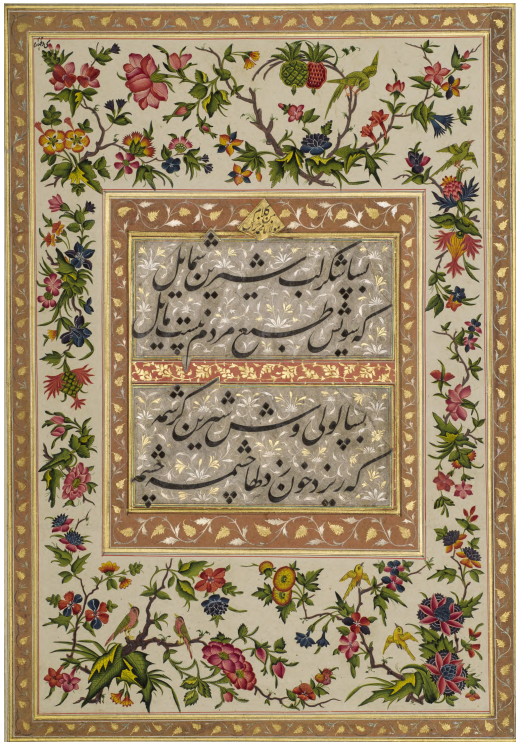 بسا شکر لب شیرین شمایل
که سویش طبع مردم نیست مایل
بسا لولی وش شیرین کرشمه
که ریزد خون ز دلها چشمه چشمه